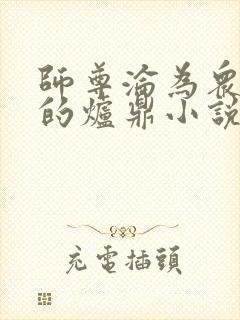 師尊淪為眾
的爐鼎小說
充電插頭